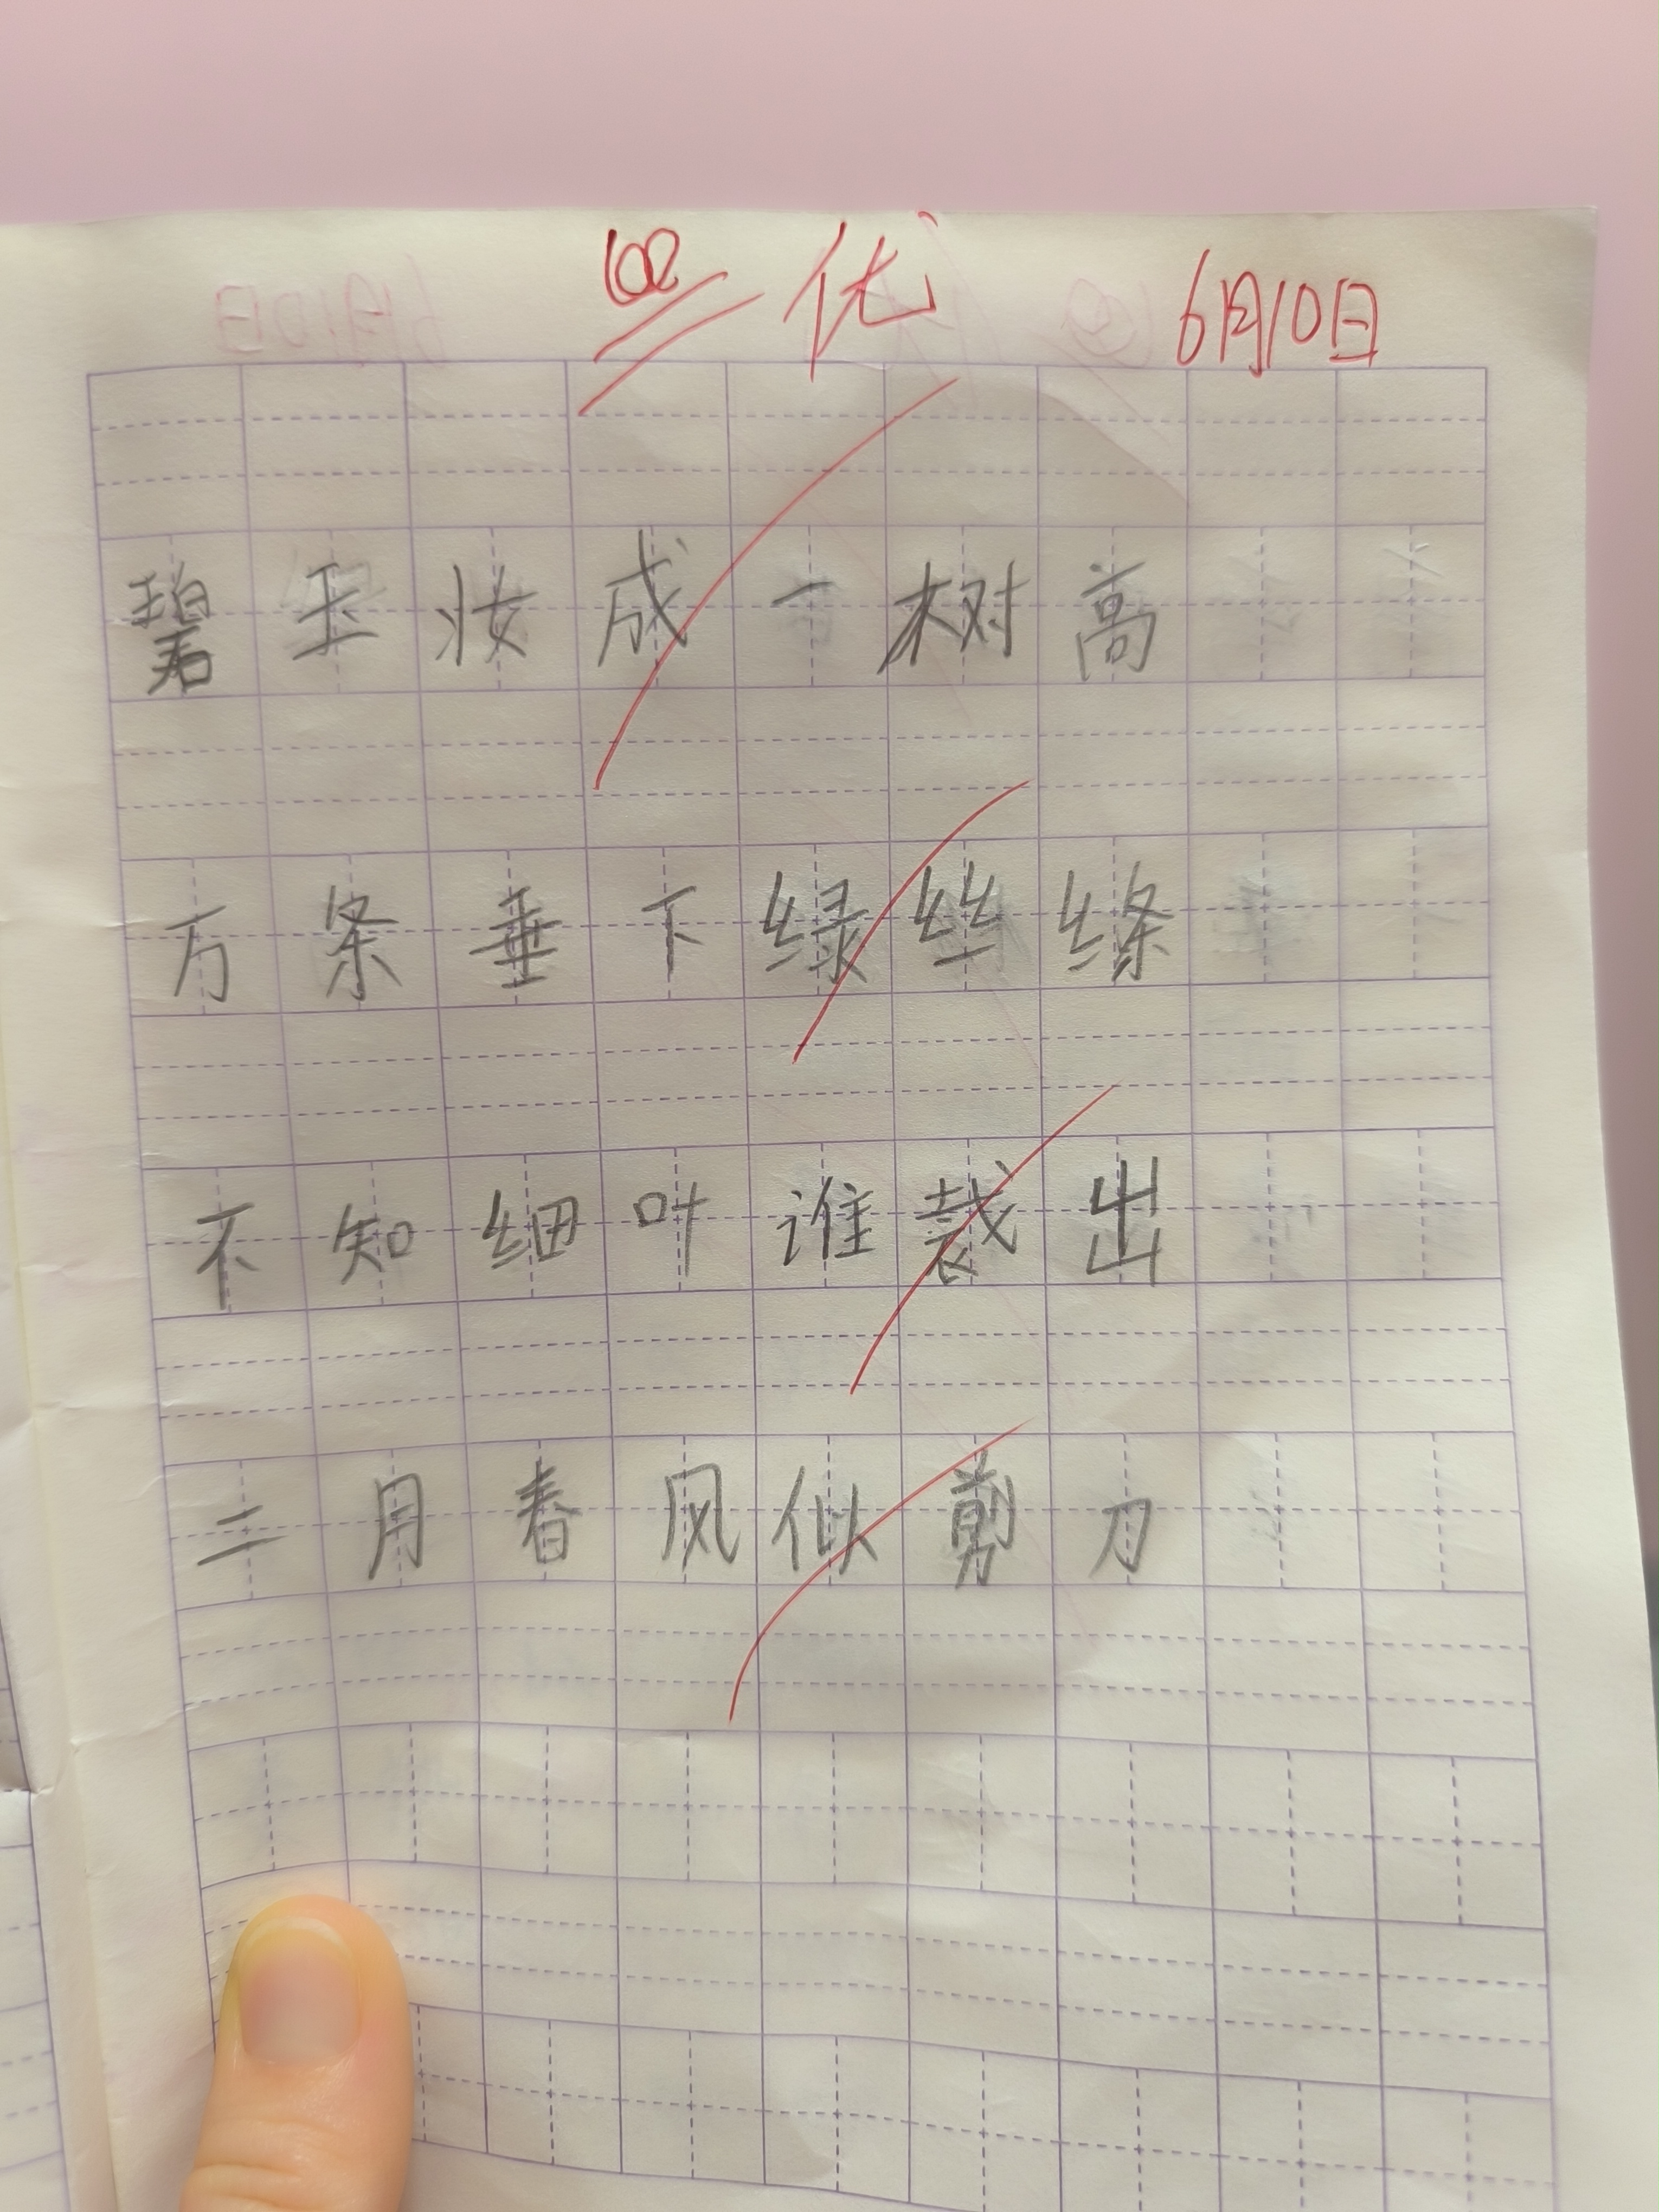 100 优 6月10日
碧玉妆成一树高
万条垂下绿丝绦
不知细叶谁裁出
二月春风似剪刀